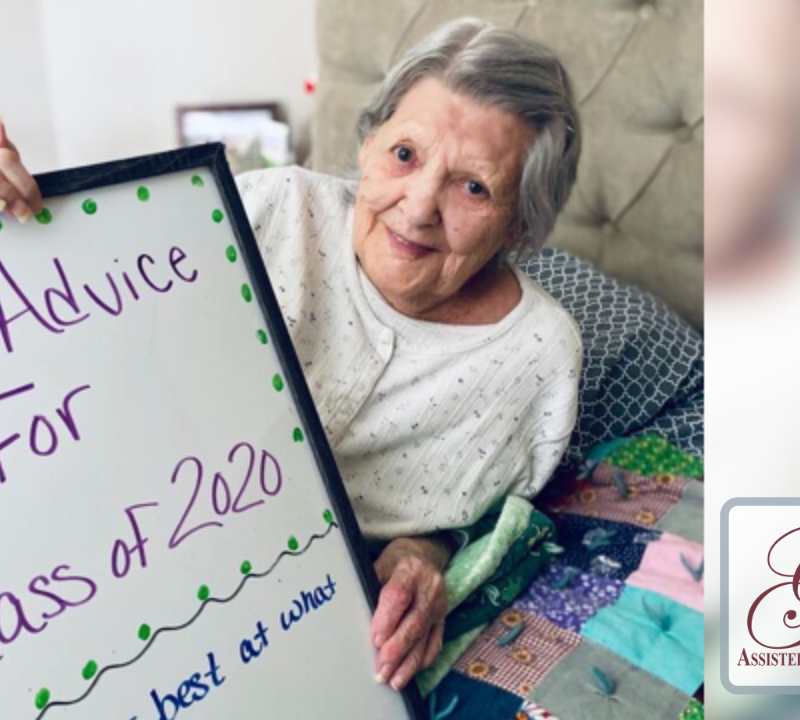 Advice
For
ass of 2020
best at what
ASSISTE